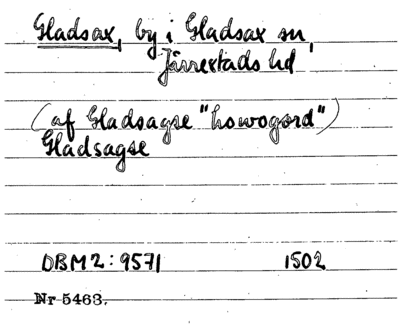 Gladsax, by i Gladsax sn,
Järrestads hd
(af Gladsagse "howogord")
Gladsagse
DBM2:9571 1502
Nr 5463.